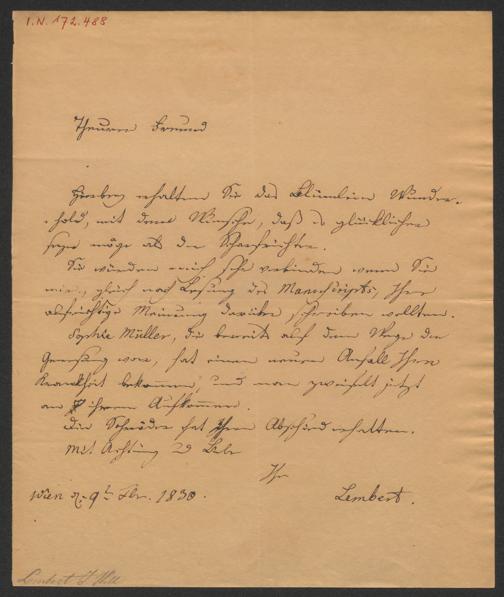 I.N. 172.488
Theurer Freund
Hierbey erhalten Sie das Blümlein Wunder-
hold, mit dem Wunsche, daß es glücklicher
seyn möge als der Scharfrichter.
Sie würden mich sehr verbinden wenn Sie
mir, gleich nach Lesung des Manuscripts, Ihre
aufrichtige Meinung darüber schreiben wollten.
Sophie Müller, die bereits auf dem Wege der
Genesung war, hat einen neuen Anfall Ihrer
Krankheit bekommen, und man zweifelt jetzt
an ihrem Aufkommen.
Die Schröder hat ihren Abschied erhalten.
Mit Achtung
Ihr
Wien 9t 1830. Lembert.
Lembert J